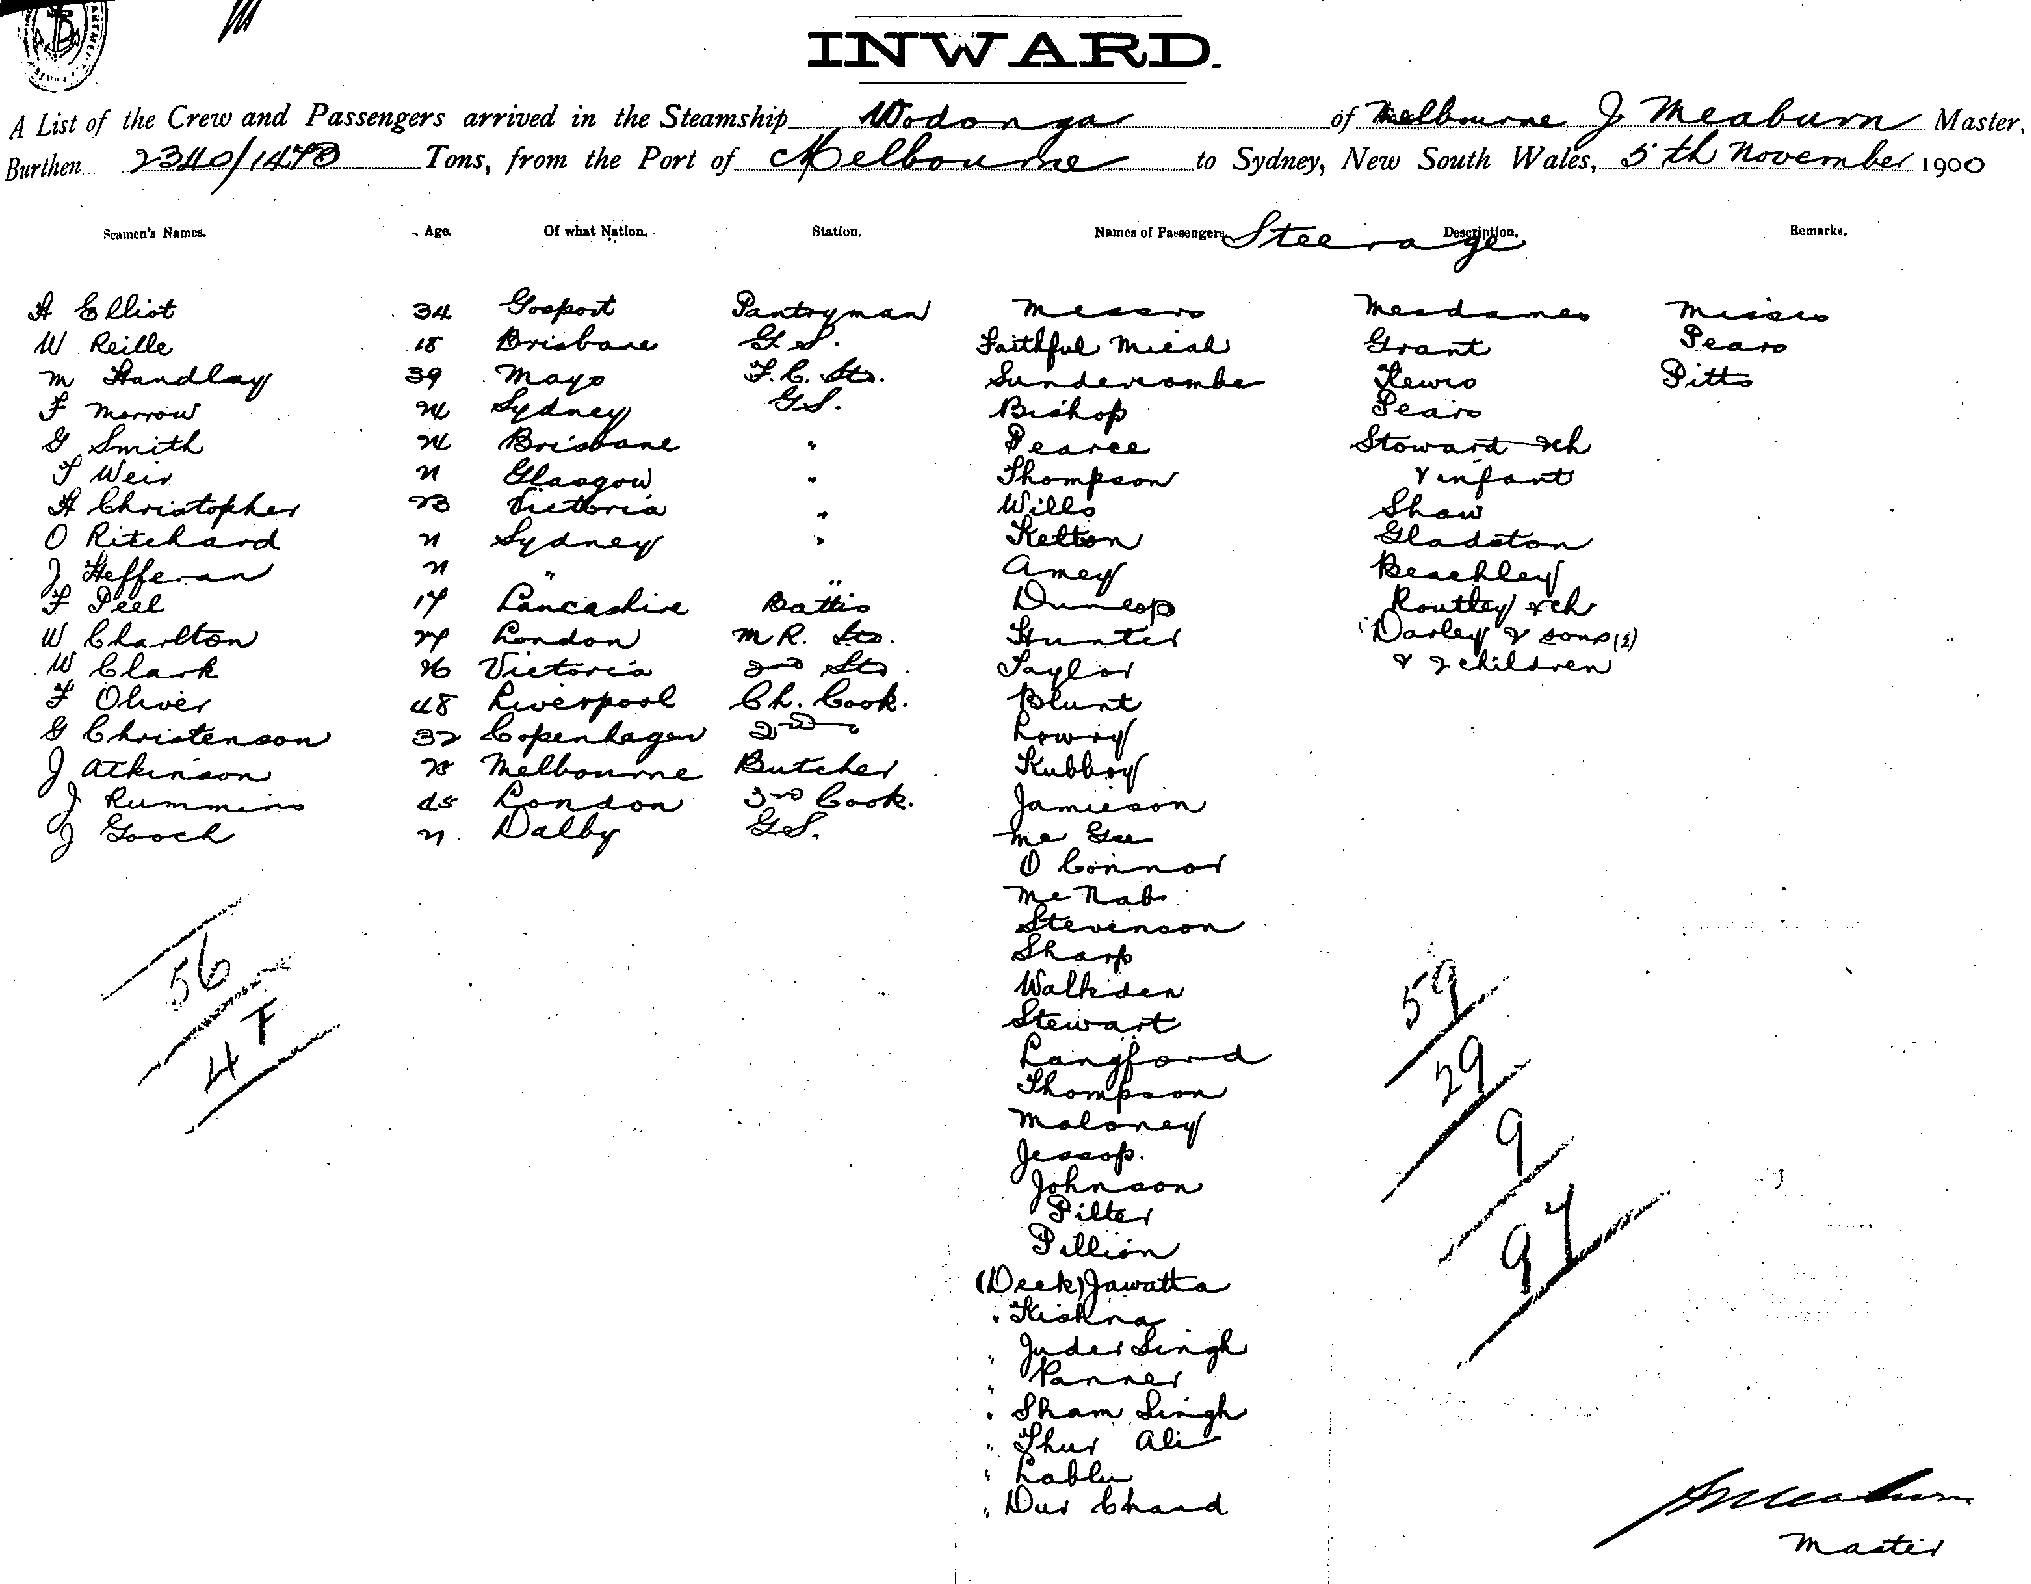 INWARD.
A List of the Crew and Passengers arrived in the Steamship Wodonga of Melbourne J Meaburn Master,
Burthen 2340/1473 Tons, from the Port of Melbourne to Sydney, New South Wales, 5th November 1900
Seamen's Names. Age. Of what Nation. Station. Names of Passengers Steerage Description. Remarks.
A Elliot 34 Gosport Pantryman Messrs Mesdames Misses
W Reille 18 Brisbane G.S. Faithful Mical Grant Pears
M Handlay 39 Mayo F.C. Sts. Sundercombe Lewis Pitts
F Morrow 24 Sydney G.S. Bishop Pears
G Smith 24 Brisbane " Pearce Stoward & ch
F Weir 21 Glasgow " Thompson & infant
A Christopher 23 Victoria " Wills Shaw
O Ritchard 21 Sydney " Kelton Gladston
J Hefferan 21 " " Amey Beachley
F Peel 17 Lancashire Dunlop Routley & ch
W Charlton 27 London M.R. Sts. Hunter Darley & sons (2)
W Clark 26 Victoria 2nd Sts. Taylor & 2 children
F Oliver 48 Liverpool Ch. Cook. Blunt
G Christenson 32 Copenhagen 2nd " Lowry
J Atkinson 28 Melbourne Butcher Kubboy
J Rummins 45 London 3rd Cook. Jamieson
J Gooch 21 Dalby G.S. Mc Gee
O Connor
Mc Nab
Stevenson
Sharp
Walkden
Stewart
Langford
Thompson
Maloney
Jessop.
Johnson
Pilter
Pillion
(Deck) Jawatta
" Kishna
" Juder Singh
" Panner
" Sham Singh
" Thur Ali
" Lablu
" Dur Chand
56
4 F
59
29
9
97
J Meaburn
Master